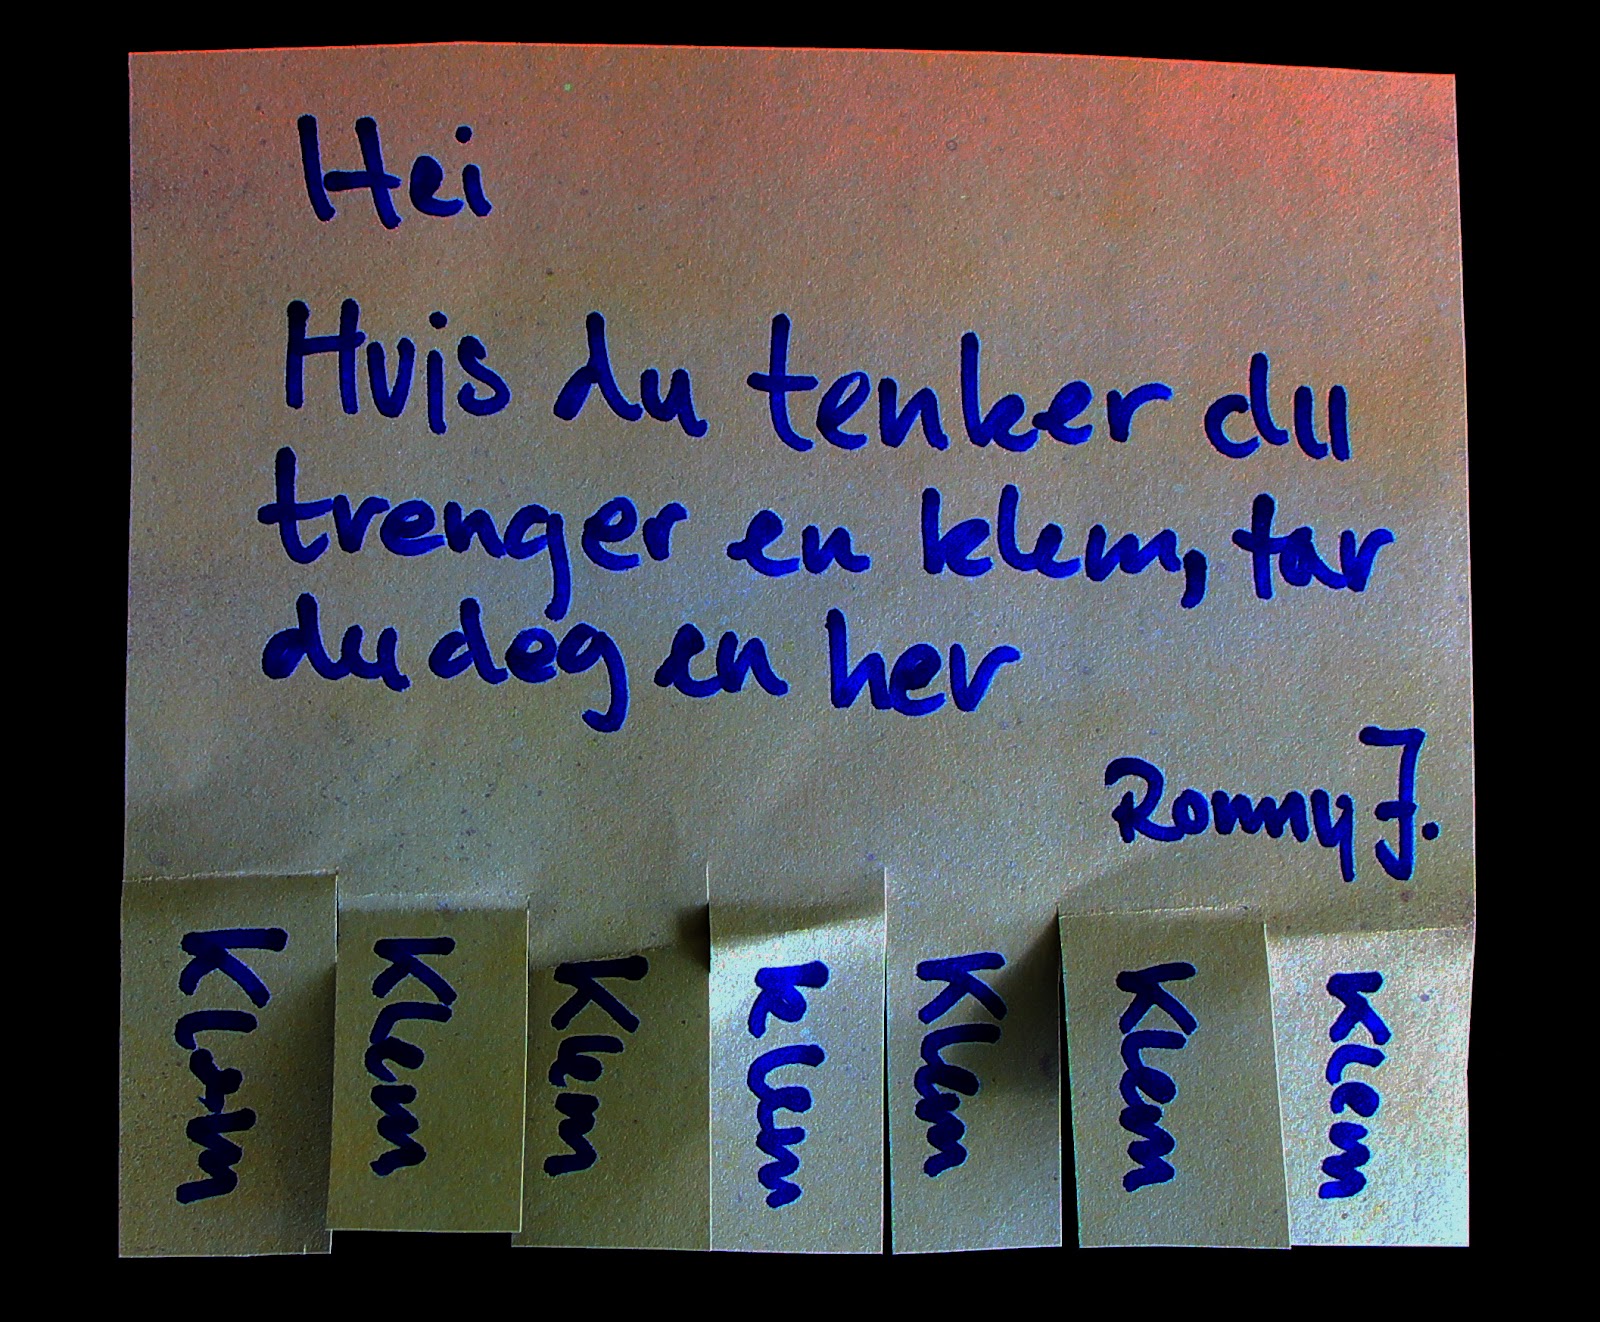 Hei
Hvis du tenker du
trenger en klem, tar
du deg en her
Ronny J.
Klem
Klem
Klem
klem
Klem
Klem
Klem